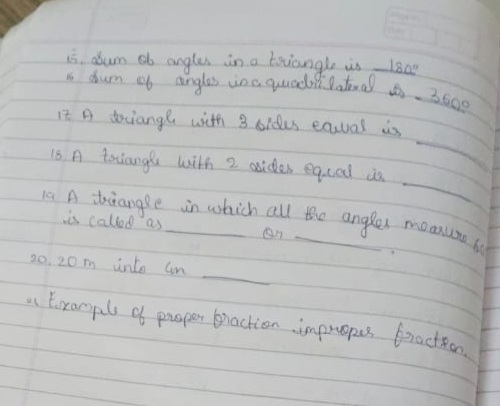 15. Sum of angles in a triangle is 180°
16 Sum of angles in a quadrilateral is 360°
17. A triangle with 3 sides equal is ______
18. A triangle with 2 sides equal is ______
19. A triangle in which all the angles measure 60
is called as ______ or ______.
20. 20 m into cm ______
21. Example of proper fraction improper fraction.